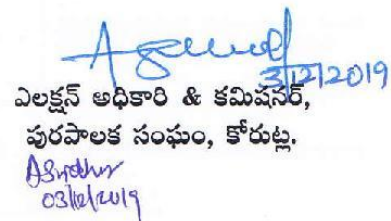 3/12/2019
ఎలక్షన్ అధికారి & కమిషనర్,
పురపాలక సంఘం, కోరుట్ల.
03/12/2019